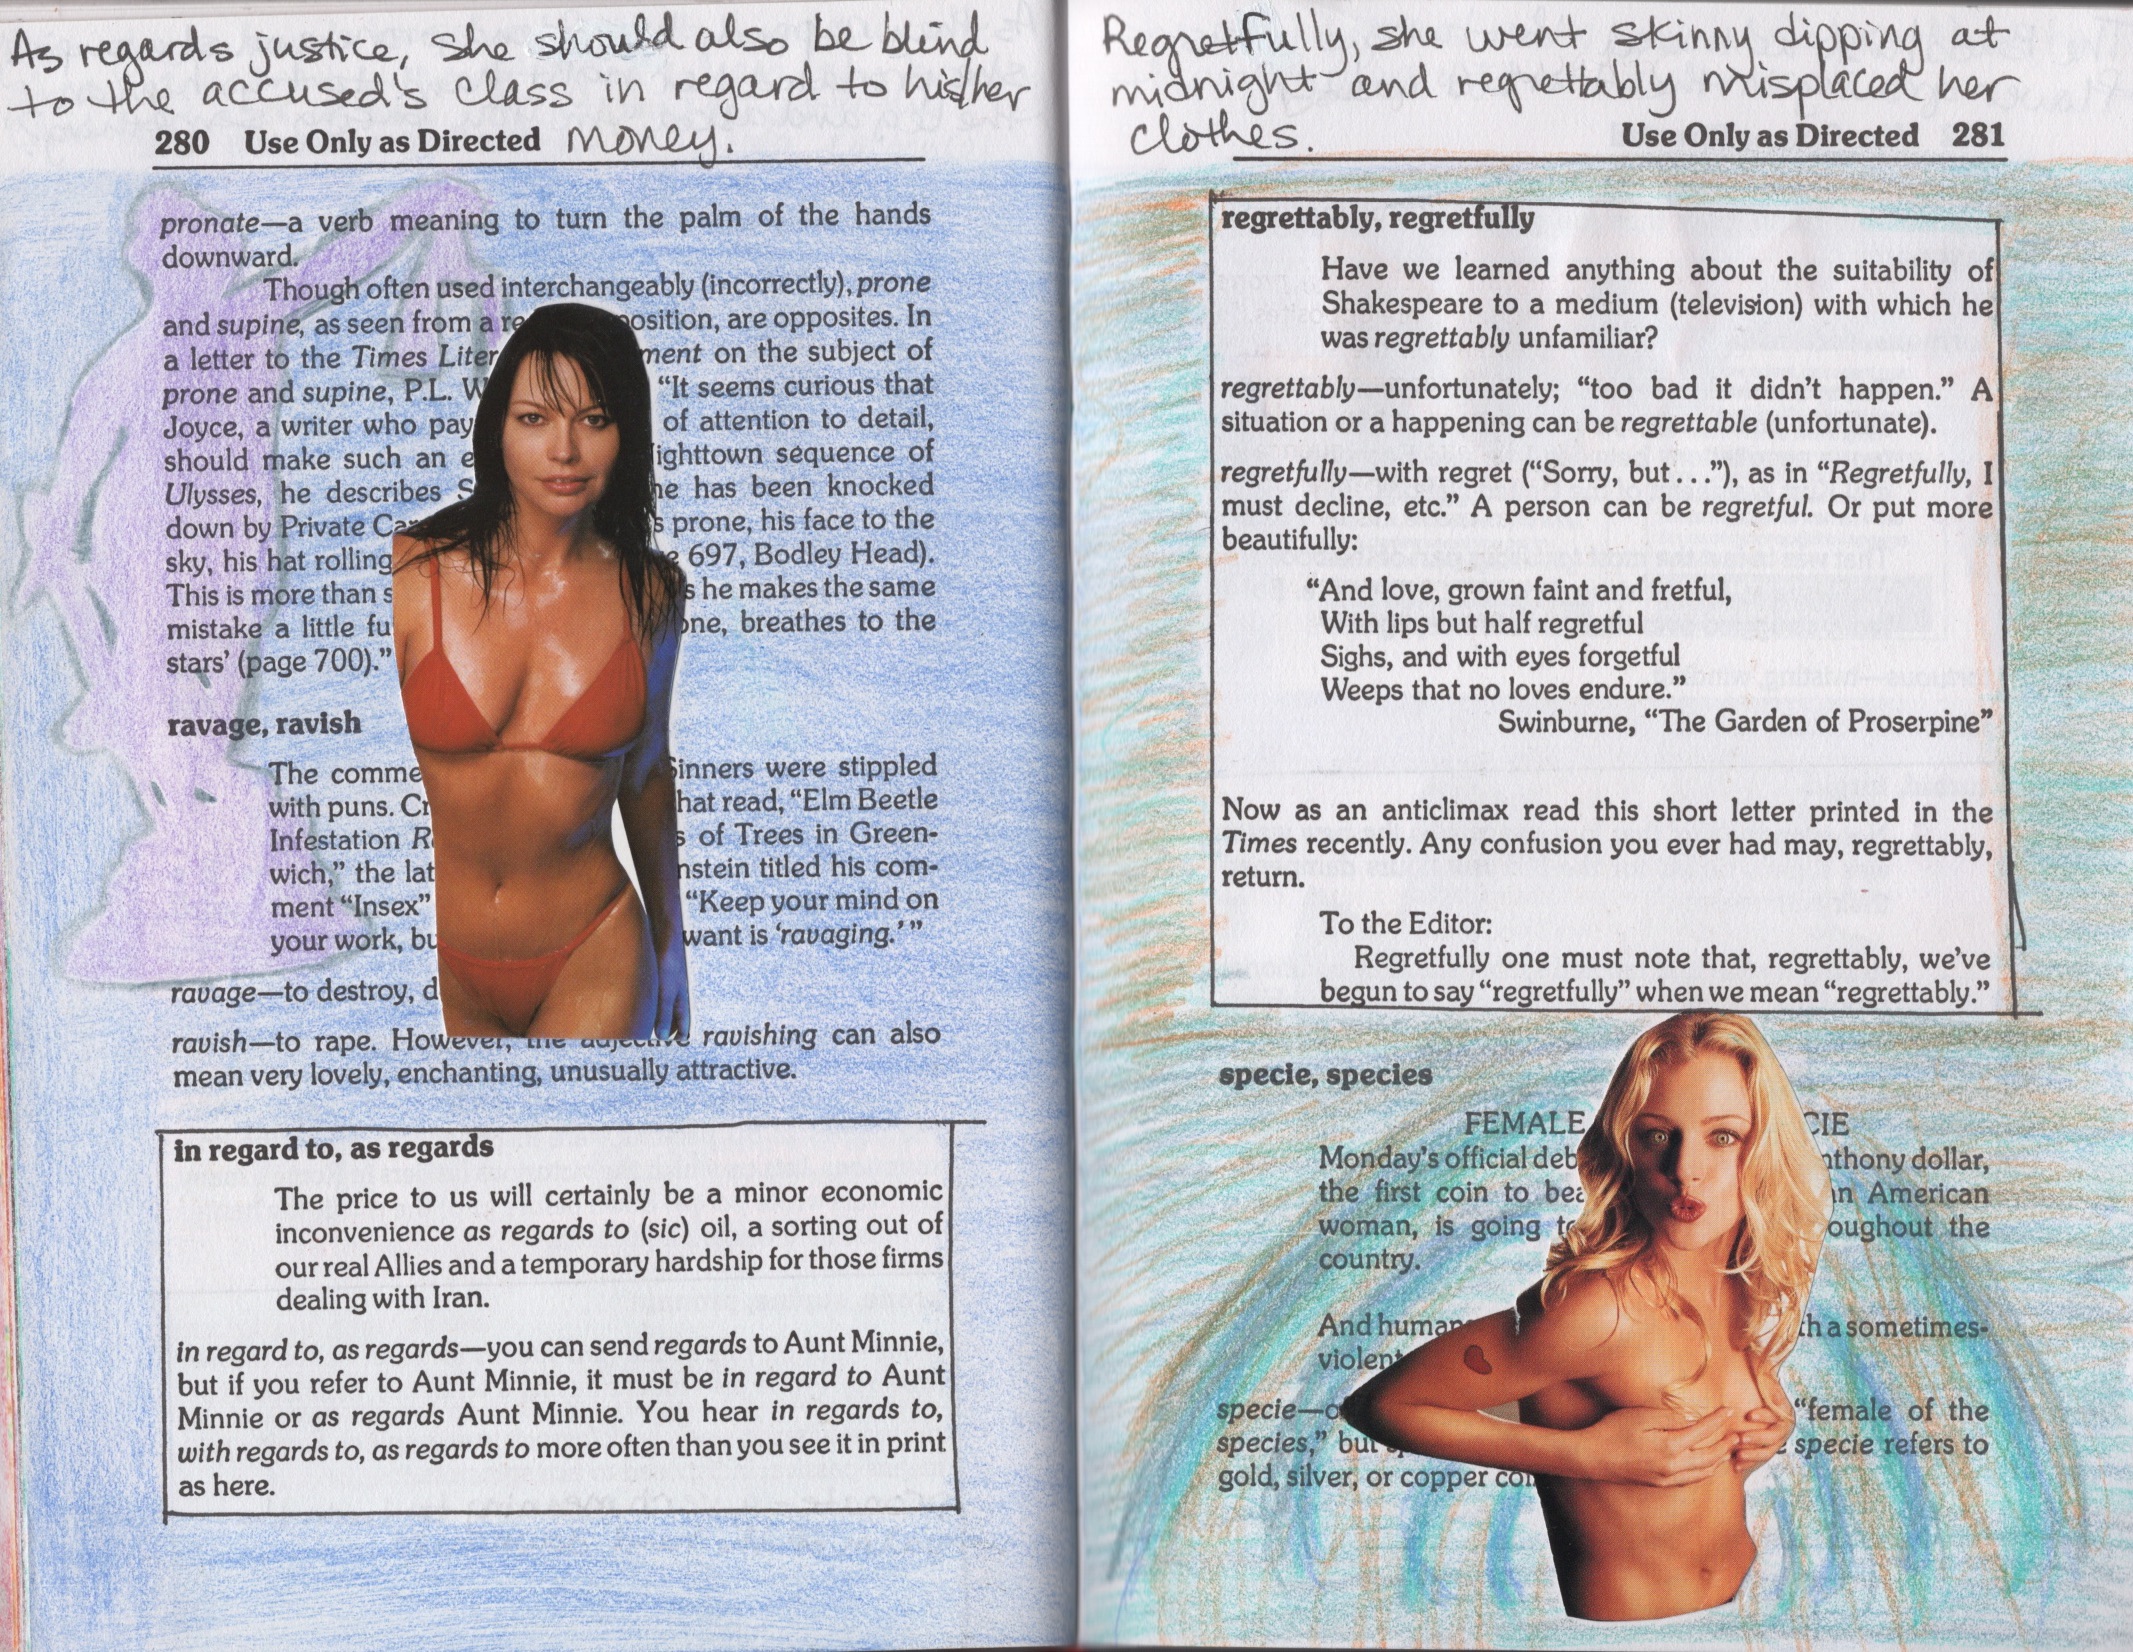 As regards justice, she should also be blind
to the accused's class in regard to his/her
280 Use Only as Directed money.
pronate—a verb meaning to turn the palm of the hands
downward.
Though often used interchangeably (incorrectly), prone
and supine, as seen from a osition, are opposites. In
a letter to the Times Liter ment on the subject of
prone and supine, P.L. W “It seems curious that
Joyce, a writer who pay of attention to detail,
should make such an e ighttown sequence of
Ulysses, he describes S he has been knocked
down by Private Ca s prone, his face to the
sky, his hat rolling e 697, Bodley Head).
This is more than s s he makes the same
mistake a little fu one, breathes to the
stars’ (page 700).”
ravage, ravish
The comme Sinners were stippled
with puns. Cr hat read, “Elm Beetle
Infestation R s of Trees in Green-
wich,” the lat nstein titled his com-
ment “Insex” “Keep your mind on
your work, bu want is ‘ravaging.’”
ravage—to destroy, d
ravish—to rape. However, the adjective ravishing can also
mean very lovely, enchanting, unusually attractive.
in regard to, as regards
The price to us will certainly be a minor economic
inconvenience as regards to (sic) oil, a sorting out of
our real Allies and a temporary hardship for those firms
dealing with Iran.
in regard to, as regards—you can send regards to Aunt Minnie,
but if you refer to Aunt Minnie, it must be in regard to Aunt
Minnie or as regards Aunt Minnie. You hear in regards to,
with regards to, as regards to more often than you see it in print
as here.
Regretfully, she went skinny dipping at
midnight and regrettably misplaced her
clothes. Use Only as Directed 281
regrettably, regretfully
Have we learned anything about the suitability of
Shakespeare to a medium (television) with which he
was regrettably unfamiliar?
regrettably—unfortunately; “too bad it didn’t happen.” A
situation or a happening can be regrettable (unfortunate).
regretfully—with regret (“Sorry, but...”), as in “Regretfully, I
must decline, etc.” A person can be regretful. Or put more
beautifully:
“And love, grown faint and fretful,
With lips but half regretful
Sighs, and with eyes forgetful
Weeps that no loves endure.”
Swinburne, “The Garden of Proserpine”
Now as an anticlimax read this short letter printed in the
Times recently. Any confusion you ever had may, regrettably,
return.
To the Editor:
Regretfully one must note that, regrettably, we’ve
begun to say “regretfully” when we mean “regrettably.”
specie, species
FEMALE CIE
Monday’s official deb nthony dollar,
the first coin to bea n American
woman, is going to oughout the
country.
And human th a sometimes-
violent
specie— “female of the
species,” but specie refers to
gold, silver, or copper coi